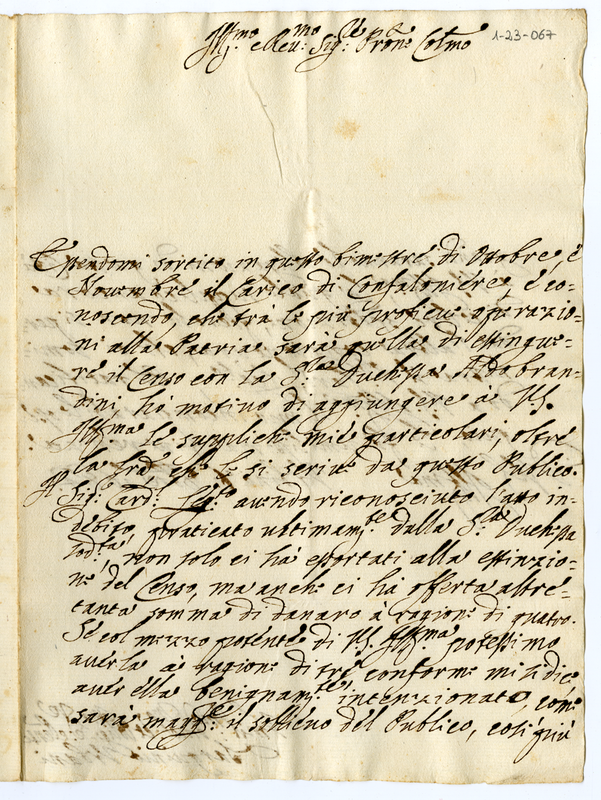 Ill.mo e Reu.mo Sig.re Pron.e Col.mo
1-23-067
Essendomi sortito in questo bimestre di Ottobre, é
Nouembre il Carico di Confaloniére, é co=
noscendo, che trà le più proficue operazio=
ni alla Patria sarà quella di estingue=
re il Censo con la S.ra Duch.ssa Aldobran=
dini, hò motiuo di aggiungere à VS.
Ill.ma le supplich.e mie particolari, oltre
la che le si scriue da questo Publico.
Il Sig.r Card. Leg.to auendo riconosciuto l'atto in=
debito, praticato ultimam.te dalla S.ra Duch.ssa
sod.ta, non solo ci hà esortati alla estinzio=
n.e del Censo, ma anche ci hà offerta altre=
tanta somma di danaro à ragion.e di quatro.
Se col mezzo potente di VS. Ill.ma potessimo
auerla à ragione di tré conforme mi si dice
auer ella benignam.te intenzionato, come
sarà magg.re il sollieuo del Publico, così più